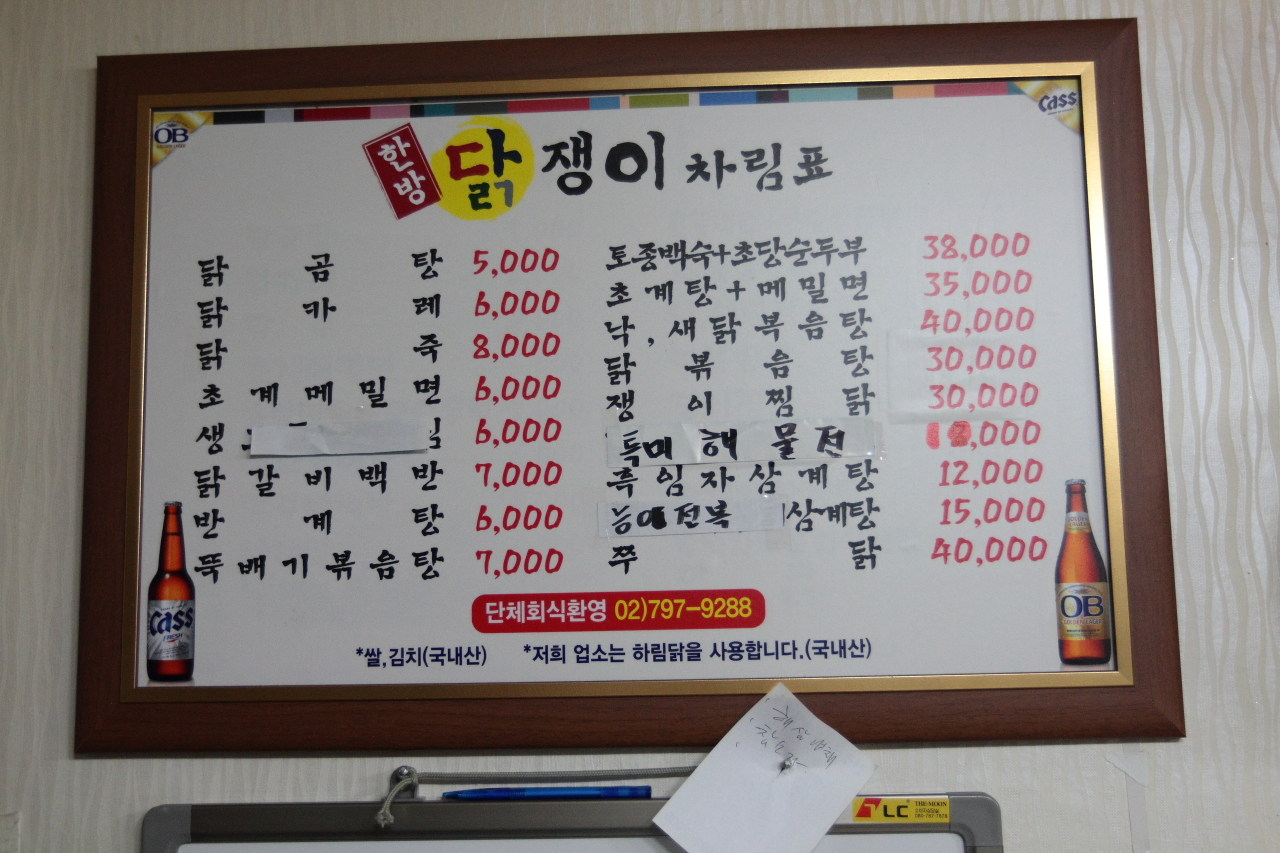 OB
Cass
한방 닭쟁이 차림표
닭곰탕 5,000
닭카레 6,000
닭죽 8,000
초계메밀면 6,000
생 6,000
닭갈비백반 7,000
반계탕 6,000
뚝배기볶음탕 7,000
토종백숙+초당순두부 38,000
초계탕+메밀면 35,000
낙,새닭볶음탕 40,000
닭볶음탕 30,000
쟁이찜닭 30,000
특미해물전 ,000
흑임자삼계탕 12,000
능이전복 삼계탕 15,000
쭈닭 40,000
단체회식환영 02)797-9288
*쌀,김치(국내산) *저희 업소는 하림닭을 사용합니다.(국내산)
Cass
FRESH
OB
GOLDEN LAGER
TLC THE-MOON